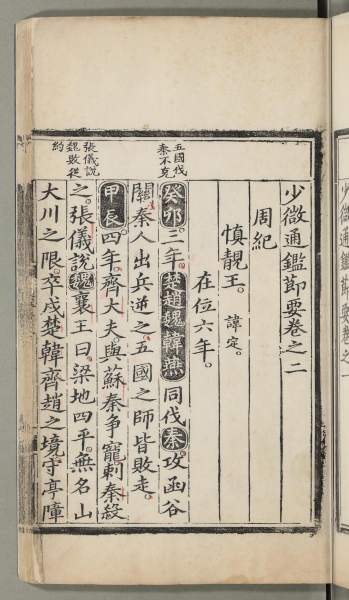 少微通鑑節要卷之二
周紀
慎靚王。諱定。
在位六年。
五國伐秦不克
癸卯。三年。楚趙魏韓燕同伐秦。攻函谷
關。秦人出兵逆之。五國之師皆敗走。
張儀說魏敗從約
甲辰四年。齊大夫。與蘇秦争寵。刺秦殺
之。張儀說魏襄王曰。梁地四平。無名山
大川之限。卒戍楚韓齊趙之境。守亭障